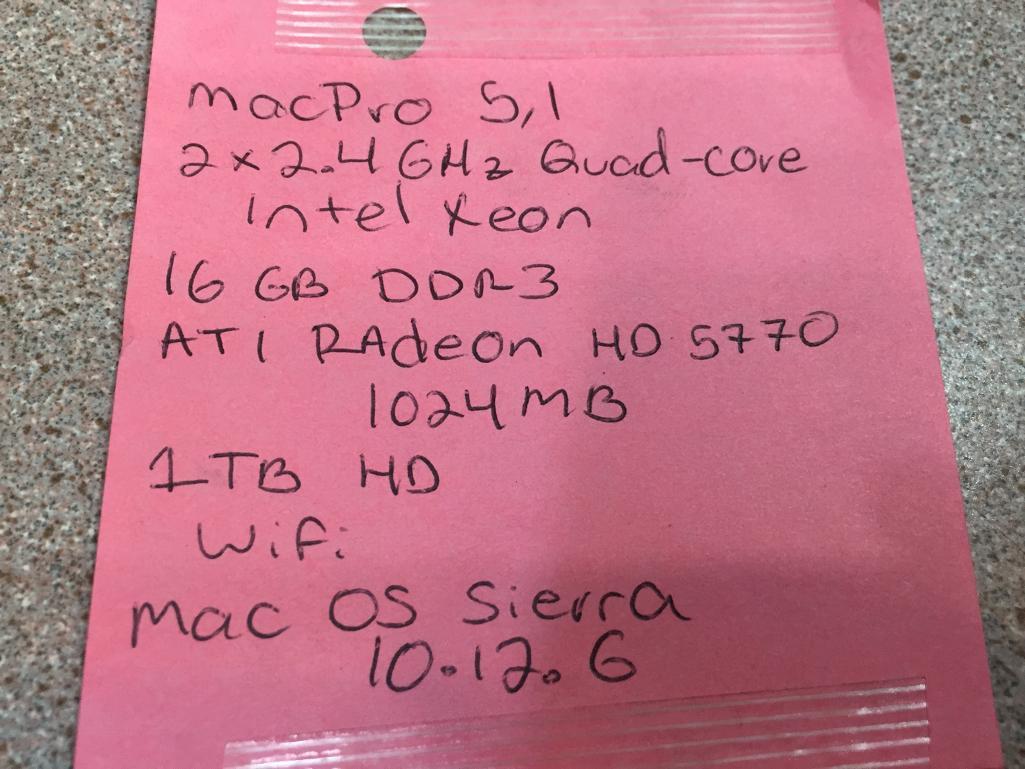 macPro 5,1
2 x 2.4 GHz Quad-core
Intel Xeon
16 GB DDR3
ATI RAdeon HD 5770
1024 MB
1TB HD
Wifi
mac OS Sierra
10.12.6